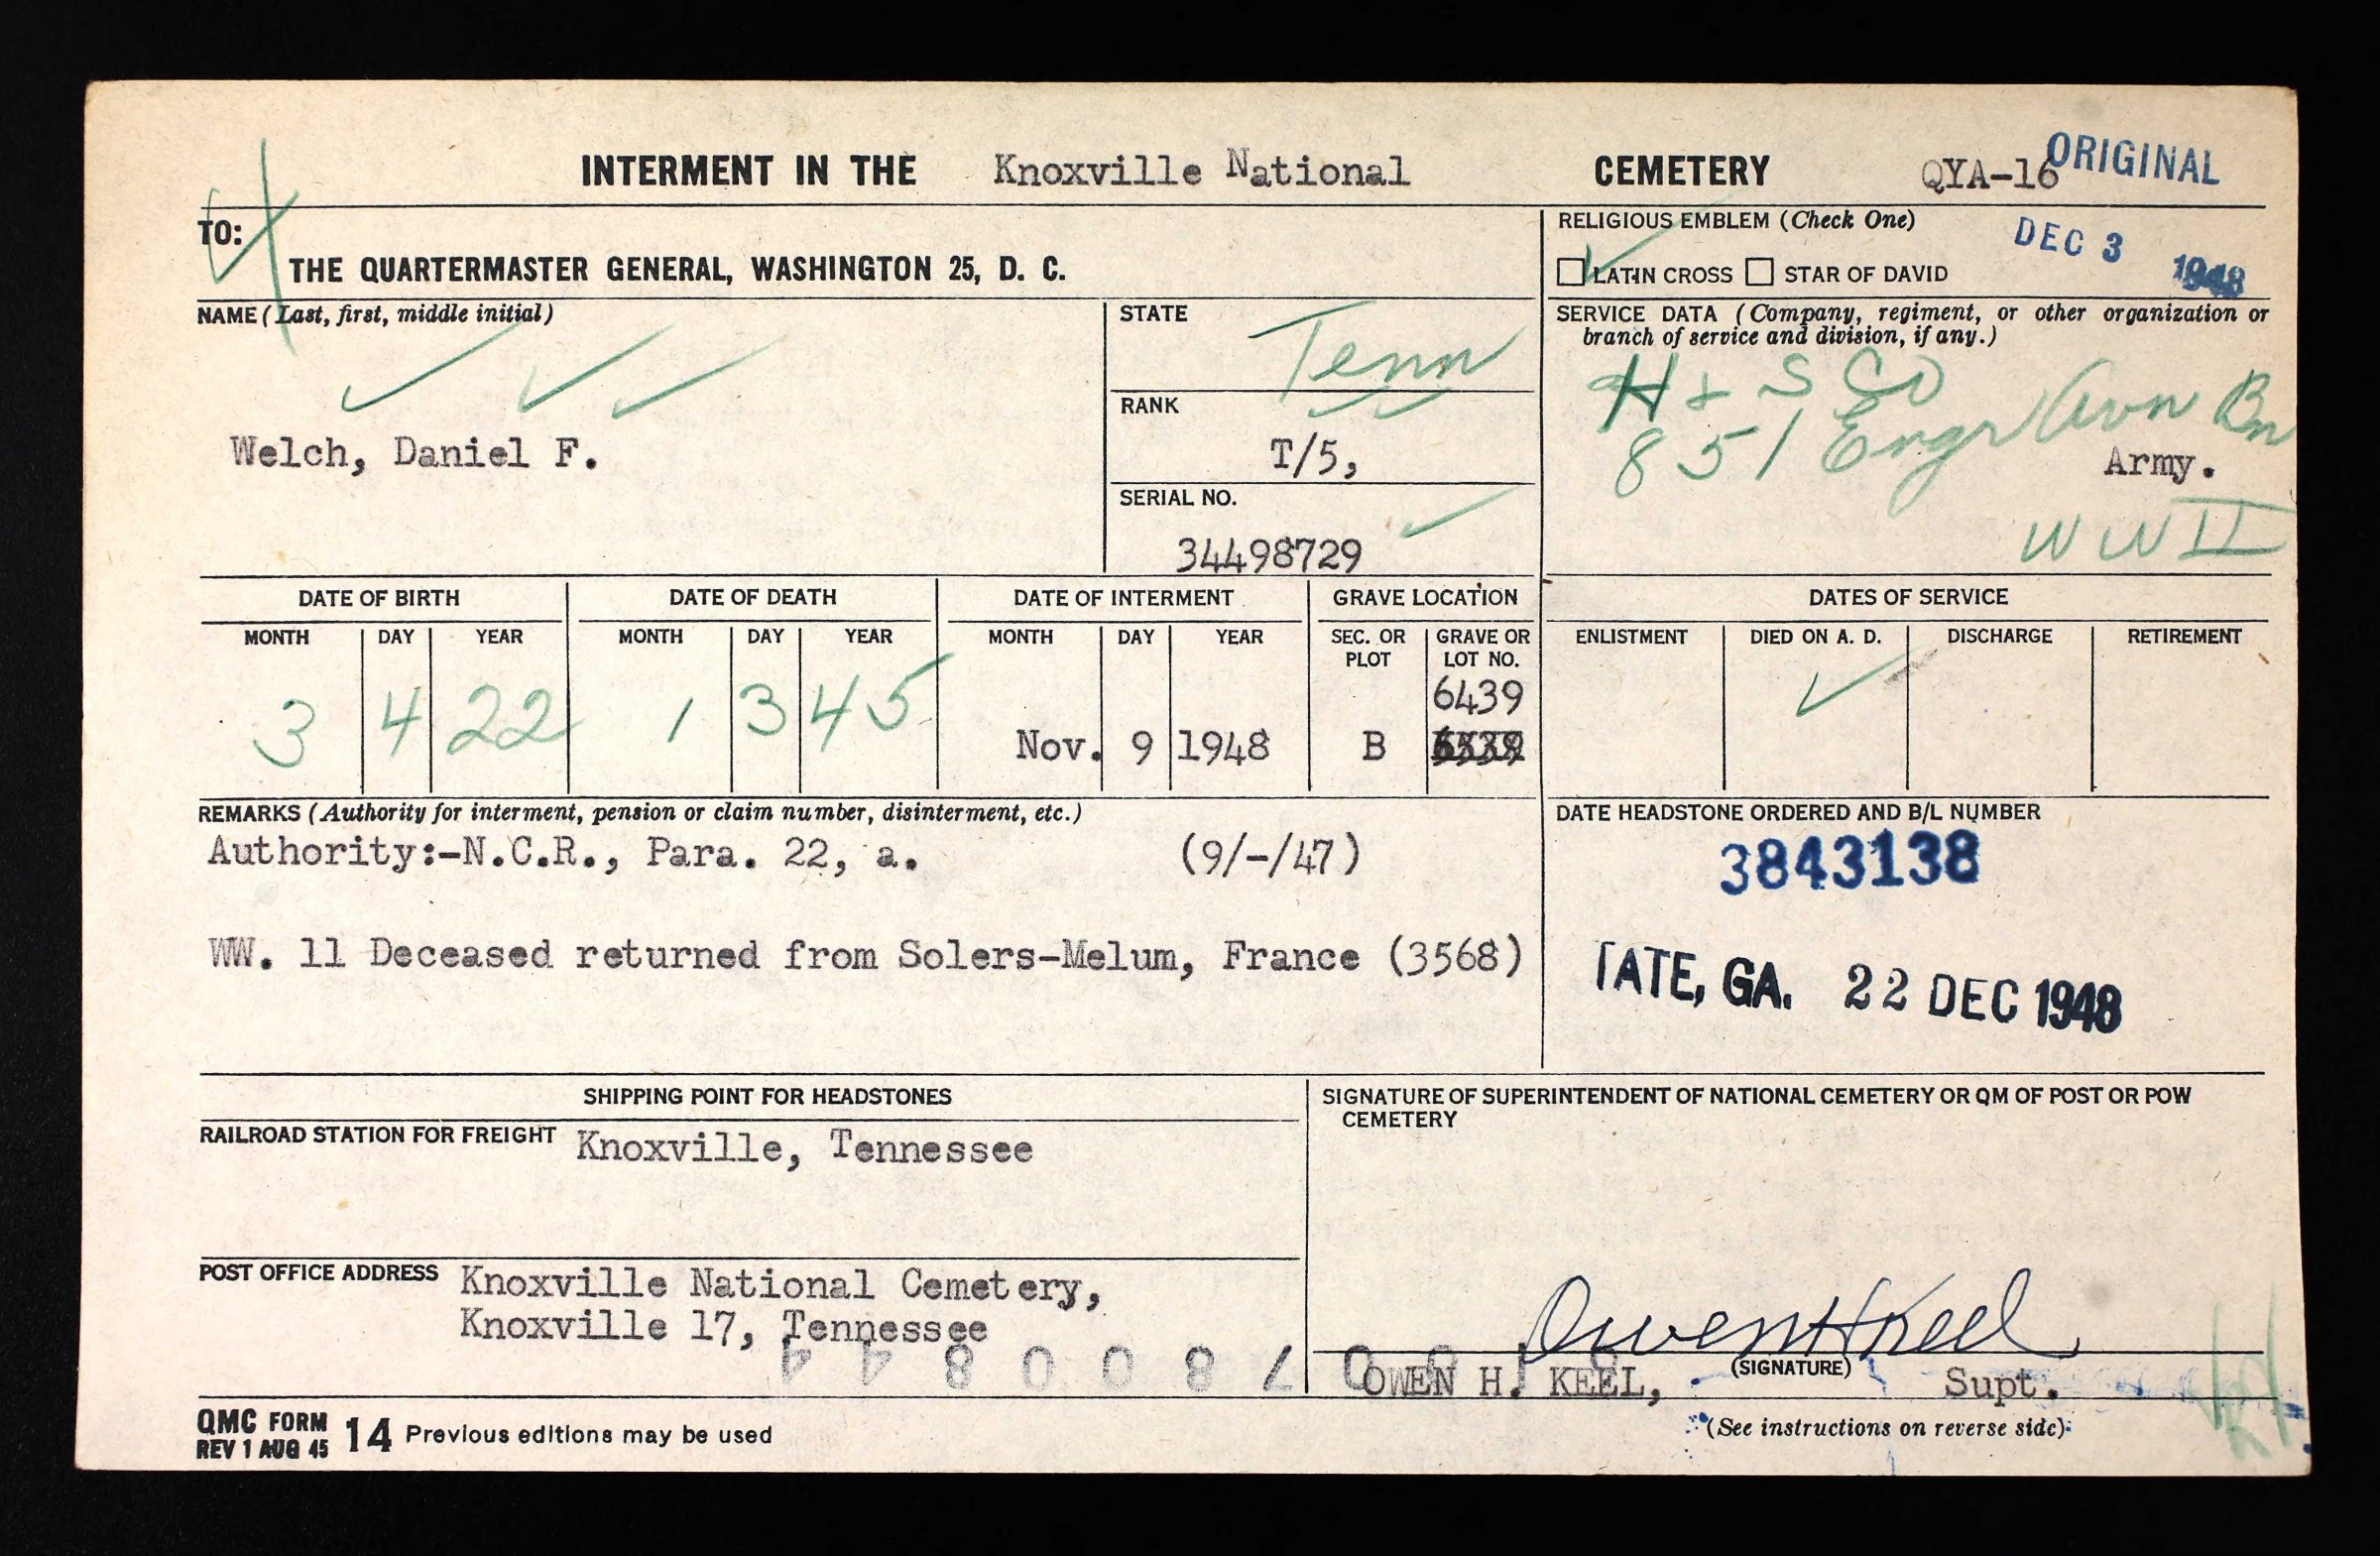 INTERMENT IN THE Knoxville National CEMETERY QYA-16 ORIGINAL
TO:
THE QUARTERMASTER GENERAL, WASHINGTON 25, D. C.
RELIGIOUS EMBLEM (Check One)
DEC 3 1948
LATIN CROSS STAR OF DAVID
NAME (Last, first, middle initial)
Welch, Daniel F.
STATE
Tenn
RANK
T/5,
SERIAL NO.
34498729
SERVICE DATA (Company, regiment, or other organization or
branch of service and division, if any.)
H + S CO
851 Engr Avn Bn
Army.
WW II
DATE OF BIRTH DATE OF DEATH DATE OF INTERMENT GRAVE LOCATION DATES OF SERVICE
MONTH DAY YEAR MONTH DAY YEAR MONTH DAY YEAR SEC. OR PLOT GRAVE OR LOT NO. ENLISTMENT DIED ON A. D. DISCHARGE RETIREMENT
6439
3 4 22 1 3 45 Nov. 9 1948 B
REMARKS (Authority for interment, pension or claim number, disinterment, etc.)
Authority:-N.C.R., Para. 22, a. (9/-/47)
WW. 11 Deceased returned from Solers-Melum, France (3568)
DATE HEADSTONE ORDERED AND B/L NUMBER
3843138
TATE, GA. 22 DEC 1948
SHIPPING POINT FOR HEADSTONES
RAILROAD STATION FOR FREIGHT Knoxville, Tennessee
POST OFFICE ADDRESS Knoxville National Cemetery,
Knoxville 17, Tennessee
SIGNATURE OF SUPERINTENDENT OF NATIONAL CEMETERY OR QM OF POST OR POW
CEMETERY
Owen H Keel
(SIGNATURE)
OWEN H. KEEL, Supt.
QMC FORM 14 Previous editions may be used
REV 1 AUG 45
(See instructions on reverse side)